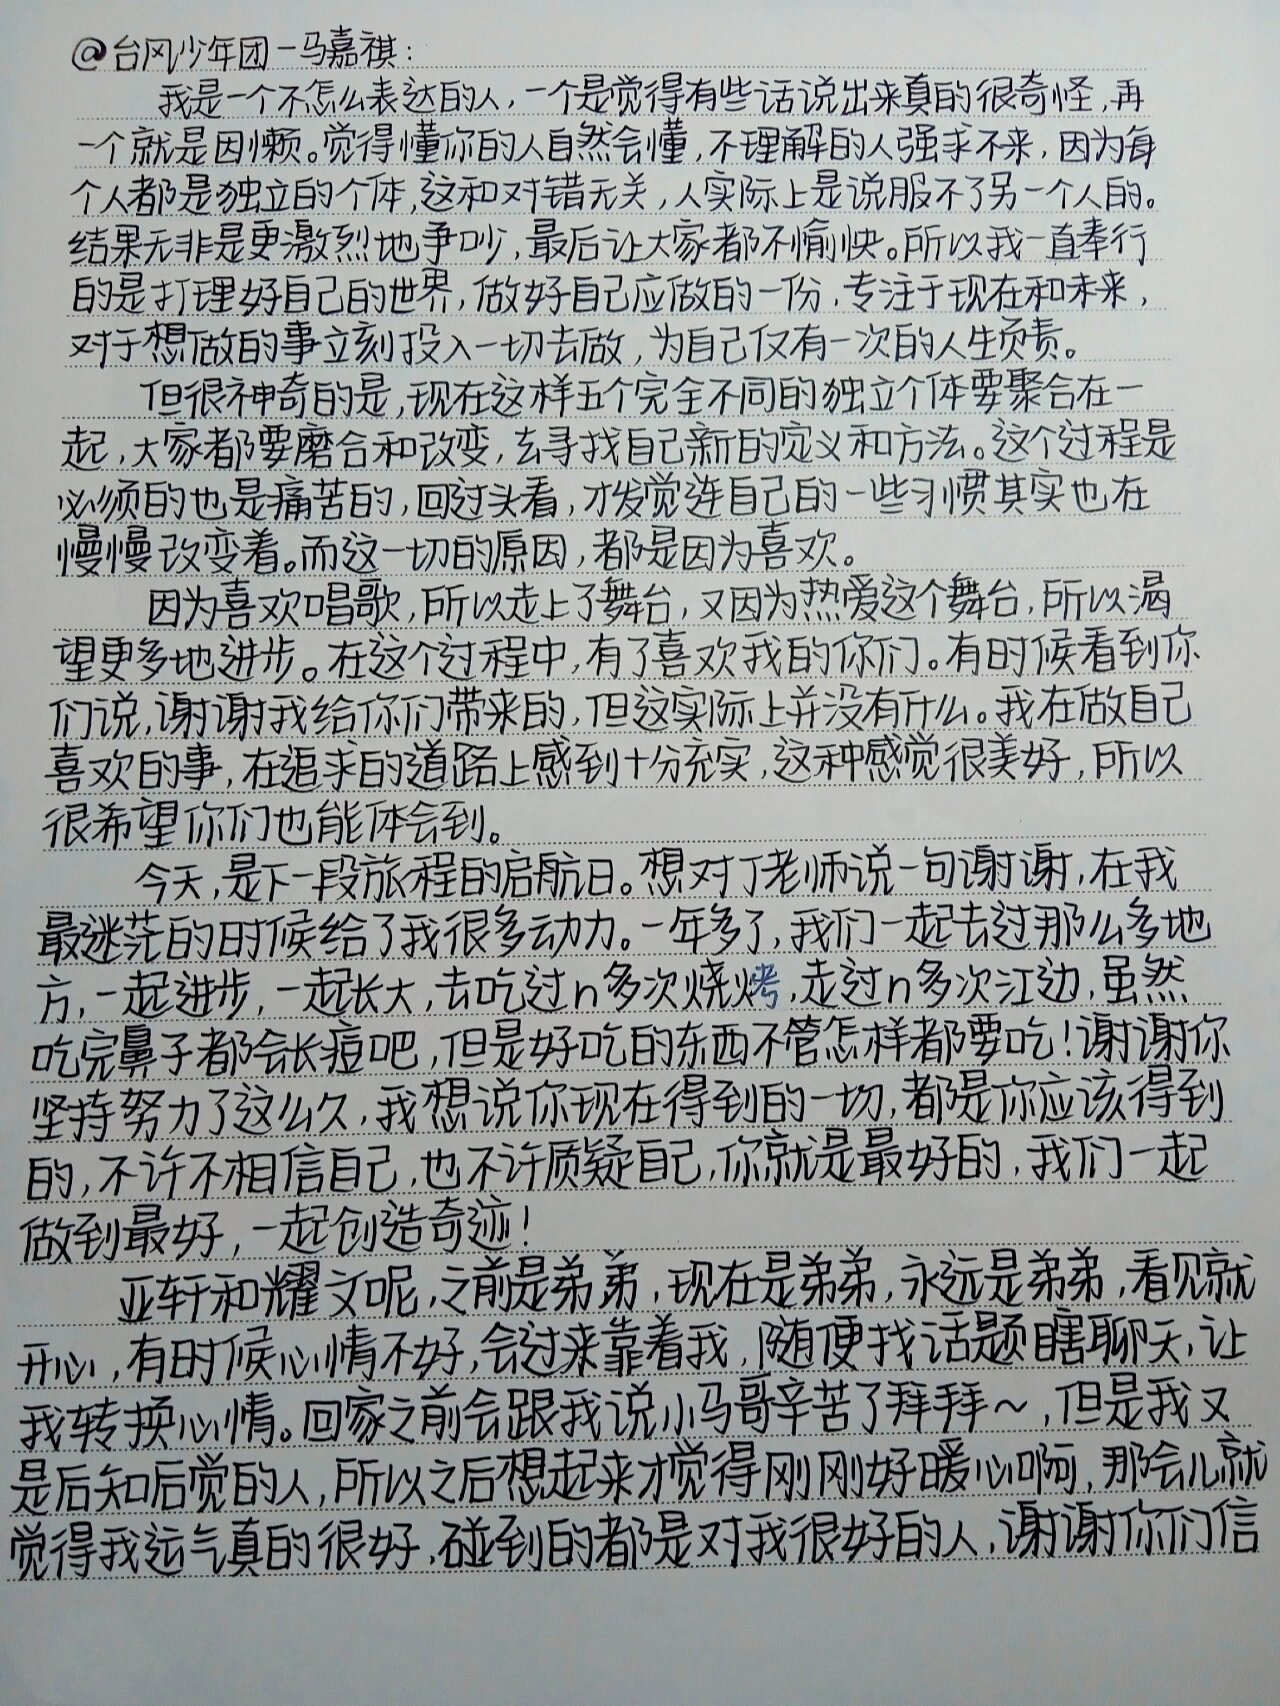 @台风少年团-马嘉祺:
我是一个不怎么表达的人,一个是觉得有些话说出来真的很奇怪,再
一个就是因懒。觉得懂你的人自然会懂,不理解的人强求不来,因为每
个人都是独立的个体,这和对错无关,人实际上是说服不了另一个人的。
结果无非是更激烈地争吵,最后让大家都不愉快。所以我一直奉行
的是打理好自己的世界,做好自己应做的一份,专注于现在和未来,
对于想做的事立刻投入一切去做,为自己仅有一次的人生负责。
但很神奇的是,现在这样五个完全不同的独立个体要聚合在一
起,大家都要磨合和改变,去寻找自己新的定义和方法。这个过程是
必须的也是痛苦的,回过头看,才发觉连自己的一些习惯其实也在
慢慢改变着。而这一切的原因,都是因为喜欢。
因为喜欢唱歌,所以走上了舞台,又因为热爱这个舞台,所以渴
望更多地进步。在这个过程中,有了喜欢我的你们。有时候看到你
们说,谢谢我给你们带来的,但这实际上并没有什么。我在做自己
喜欢的事,在追求的道路上感到十分充实,这种感觉很美好,所以
很希望你们也能体会到。
今天,是下一段旅程的启航日。想对丁老师说一句谢谢,在我
最迷茫的时候给了我很多动力。一年多了,我们一起去过那么多地
方,一起进步,一起长大,去吃过n多次烧烤,走过n多次江边,虽然
吃完鼻子都会长痘吧,但是好吃的东西不管怎样都要吃!谢谢你
坚持努力了这么久,我想说你现在得到的一切,都是你应该得到
的,不许不相信自己,也不许质疑自己,你就是最好的,我们一起
做到最好,一起创造奇迹!
亚轩和耀文呢,之前是弟弟,现在是弟弟,永远是弟弟,看见就
开心,有时候心情不好,会过来靠着我,随便找话题瞎聊天,让
我转换心情。回家之前会跟我说小马哥辛苦了拜拜~,但是我又
是后知后觉的人,所以之后想起来才觉得刚刚好暖心啊,那会儿就
觉得我运气真的很好,碰到的都是对我很好的人,谢谢你们信